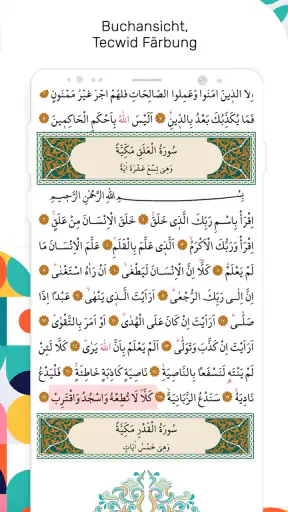 Buchansicht,
Tecwid Färbung
اِلَّا الَّذٖينَ اٰمَنُوا وَعَمِلُوا الصَّالِحَاتِ فَلَهُمْ اَجْرٌ غَيْرُ مَمْنُونٍ
فَمَا يُكَذِّبُكَ بَعْدُ بِالدّٖينِ اَلَيْسَ اللّٰهُ بِاَحْكَمِ الْحَاكِمٖينَ
سُورَةُ الْعَلَقِ مَكِّيَّةٌ
وَهِىَ تِسْعَ عَشْرَةَ اٰيَةً
بِسْمِ اللّٰهِ الرَّحْمٰنِ الرَّحٖيمِ
اِقْرَأْ بِاسْمِ رَبِّكَ الَّذٖى خَلَقَ ١ خَلَقَ الْاِنْسَانَ مِنْ عَلَقٍ ٢
اِقْرَأْ وَرَبُّكَ الْاَكْرَمُ ٣ اَلَّذٖى عَلَّمَ بِالْقَلَمِ ٤ عَلَّمَ الْاِنْسَانَ مَا
لَمْ يَعْلَمْ ٥ كَلَّا اِنَّ الْاِنْسَانَ لَيَطْغٰى ٦ اَنْ رَاٰهُ اسْتَغْنٰى ٧
اِنَّ اِلٰى رَبِّكَ الرُّجْعٰى ٨ اَرَاَيْتَ الَّذٖى يَنْهٰى ٩ عَبْدًا اِذَا
صَلّٰى ١٠ اَرَاَيْتَ اِنْ كَانَ عَلَى الْهُدٰى ١١ اَوْ اَمَرَ بِالتَّقْوٰى ١٢
اَرَاَيْتَ اِنْ كَذَّبَ وَتَوَلّٰى ١٣ اَلَمْ يَعْلَمْ بِاَنَّ اللّٰهَ يَرٰى ١٤ كَلَّا لَئِنْ
لَمْ يَنْتَهِ لَنَسْفَعًا بِالنَّاصِيَةِ ١٥ نَاصِيَةٍ كَاذِبَةٍ خَاطِئَةٍ ١٦ فَلْيَدْعُ
نَادِيَهُ ١٧ سَنَدْعُ الزَّبَانِيَةَ ١٨ كَلَّا لَا تُطِعْهُ وَاسْجُدْ وَاقْتَرِبْ ١٩
سُورَةُ الْقَدْرِ مَكِّيَّةٌ
وَهِىَ خَمْسُ اٰيَاتٍ